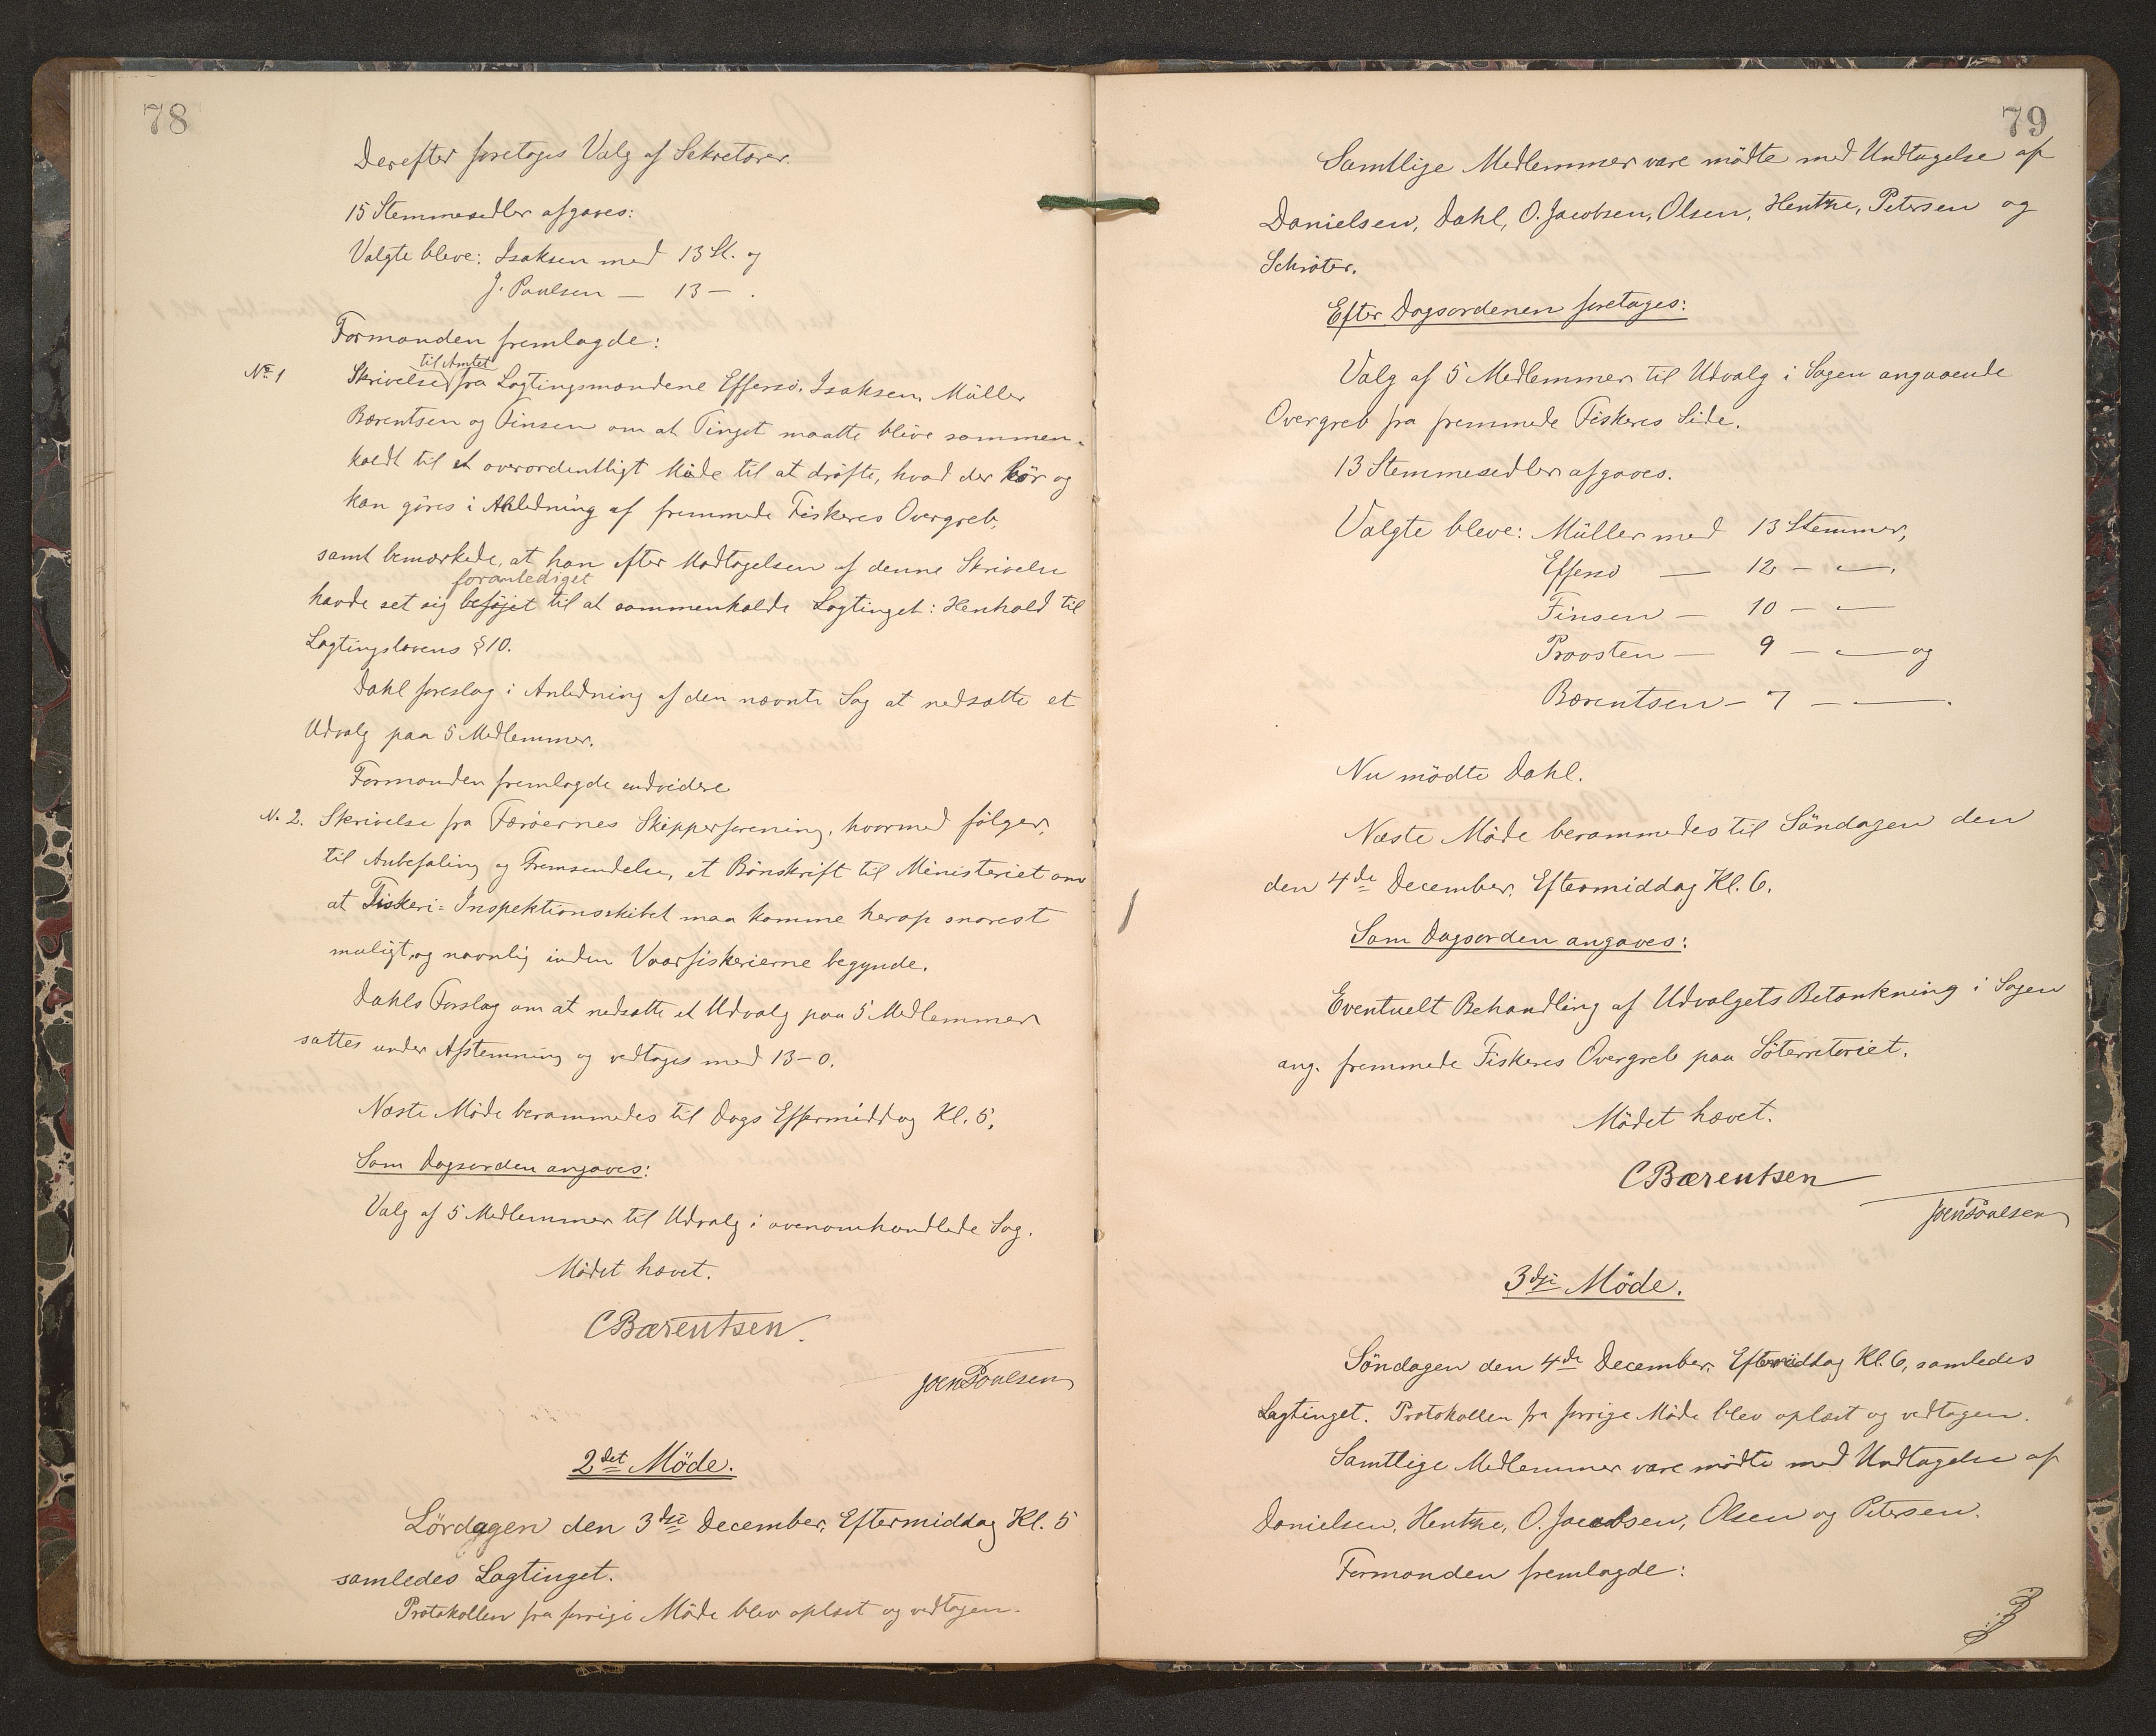 78
Derefter foretoges Valg af Sekretærer.
15 Stemmesedler afgaves:
Valgte bleve: Isaksen med 13 St. og
J. Poulsen — 13 — .
Formanden fremlagde:
No 1
til Amtet
Skrivelse fra Lagtingsmændene Effersö, Isaksen, Müller
Bærentsen og Finsen om at Tinget maatte blive sammen-
kaldt til et overordentligt Möde til at dröfte, hvad der bör og
kan göres i Anledning af fremmede Fiskeres Overgreb,
samt bemærkede, at han efter Modtagelsen af denne Skrivelse
foranlediget
havde set sig beföjet til at sammenkalde Lagtinget i Henhold til
Lagtingslovens § 10.
Dahl foreslog i Anledning af den nævnte Sag at nedsætte et
Udvalg paa 5 Medlemmer.
Formanden fremlagde endvidere
N. 2. Skrivelse fra Færöernes Skipperforening, hvormed fölger,
til Anbefaling og Fremsendelse, et Bönskrift til Ministeriet om
at Fiskeri-Inspektionsskibet maa komme herop snarest
muligt, og navnlig inden Vaarfiskerierne begynde.
Dahls Forslag om at nedsætte et Udvalg paa 5 Medlemmer
sattes under Afstemning og vedtoges med 13-0.
Næste Möde berammedes til Dags Eftermiddag Kl. 5.
Som Dagsorden angaves:
Valg af 5 Medlemmer til Udvalg i ovenomhandlede Sag.
Mödet hævet.
C Bærentsen.
Joen Poulsen
2det Möde.
Lördagen den 3die December, Eftermiddag Kl. 5
samledes Lagtinget.
Protokollen fra forrige Möde blev oplæst og vedtagen.
79
Samtlige Medlemmer vare mödte med Undtagelse af
Danielsen, Dahl, O. Jacobsen, Olsen, Hentze, Petersen og
Schröter.
Efter Dagsordenen foretoges:
Valg af 5 Medlemmer til Udvalg i Sagen angaaende
Overgreb fra fremmede Fiskeres Side.
13 Stemmesedler afgaves.
Valgte bleve: Müller med 13 Stemmer,
Effersö — 12 — — .
Finsen — 10 — —
Provsten — 9 — — og
Bærentsen — 7 — — .
Nu mödte Dahl.
Næste Möde berammedes til Söndagen den
den 4de December, Eftermiddag Kl. 6.
Som Dagsorden angaves:
Eventuelt Behandling af Udvalgets Betænkning i Sagen
ang. fremmede Fiskeres Overgreb paa Söterritoriet.
Mödet hævet.
C Bærentsen
Joen Poulsen
3die Möde.
Söndagen den 4de December, Eftermiddag Kl. 6, samledes
Lagtinget. Protokollen fra forrige Möde blev oplæst og vedtagen.
Samtlige Medlemmer vare mödte med Undtagelse af
Danielsen, Hentze, O. Jacobsen, Olsen og Petersen.
Formanden fremlagde: